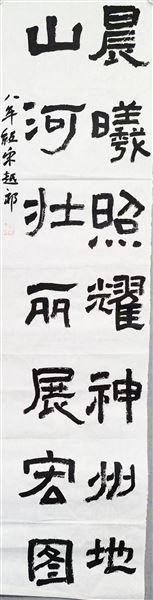 晨曦照耀神州地
山河壮丽展宏图
八年组宋越郡